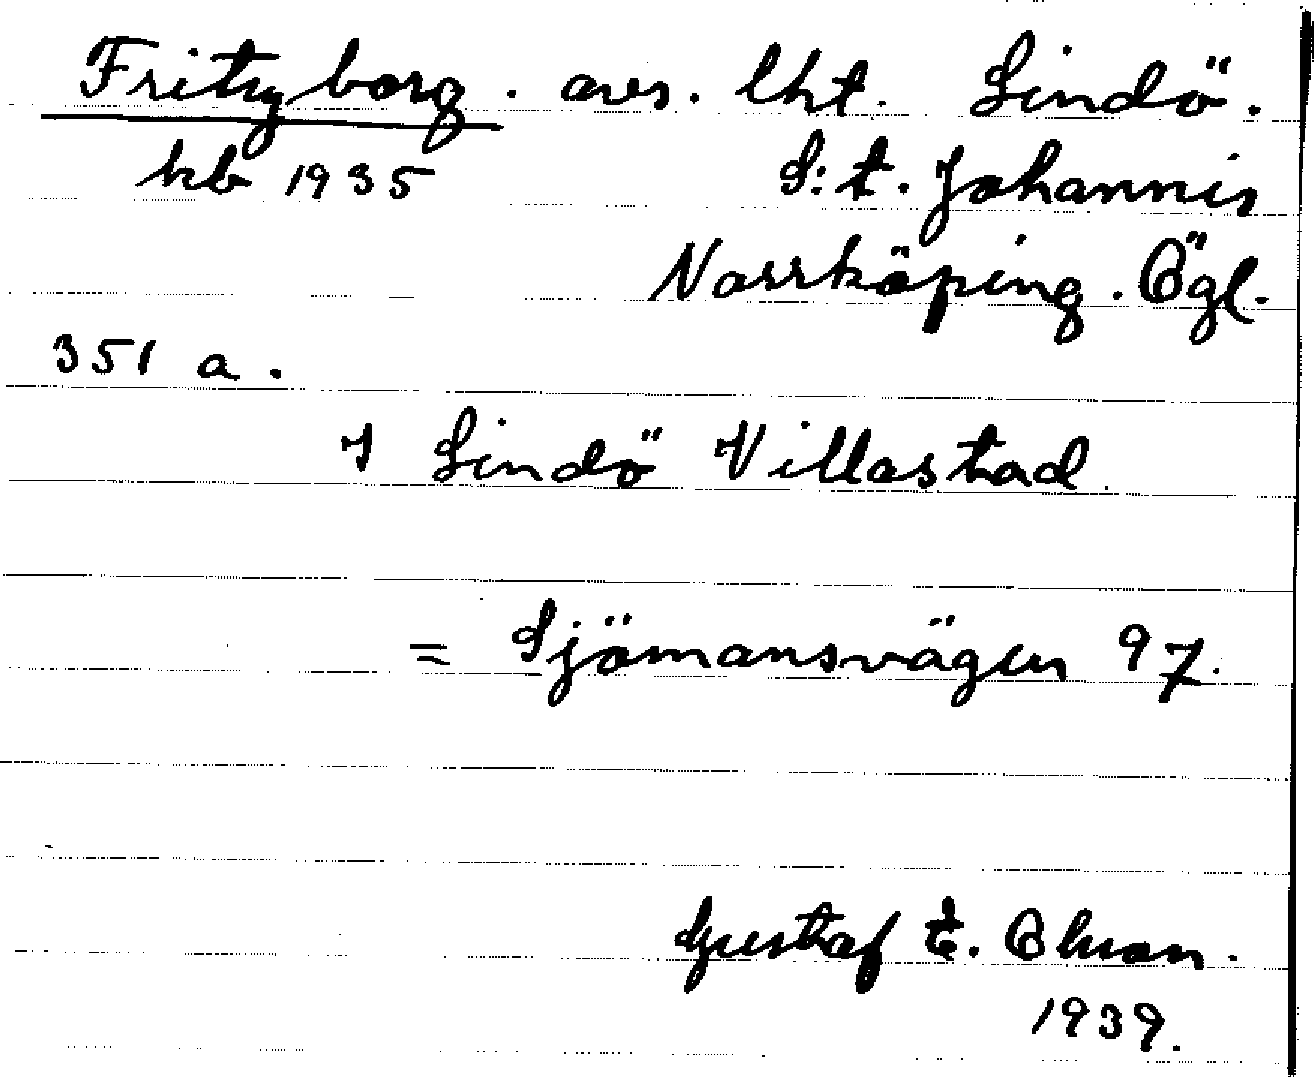 Fritzborg. avs. lht. Lindö.
kb 1935 S:t. Johannis
Norrköping. Ögl.
351 a.
I Lindö Villastad.
= Sjömansvägen 97.
Gustaf E. Ohson.
1939.